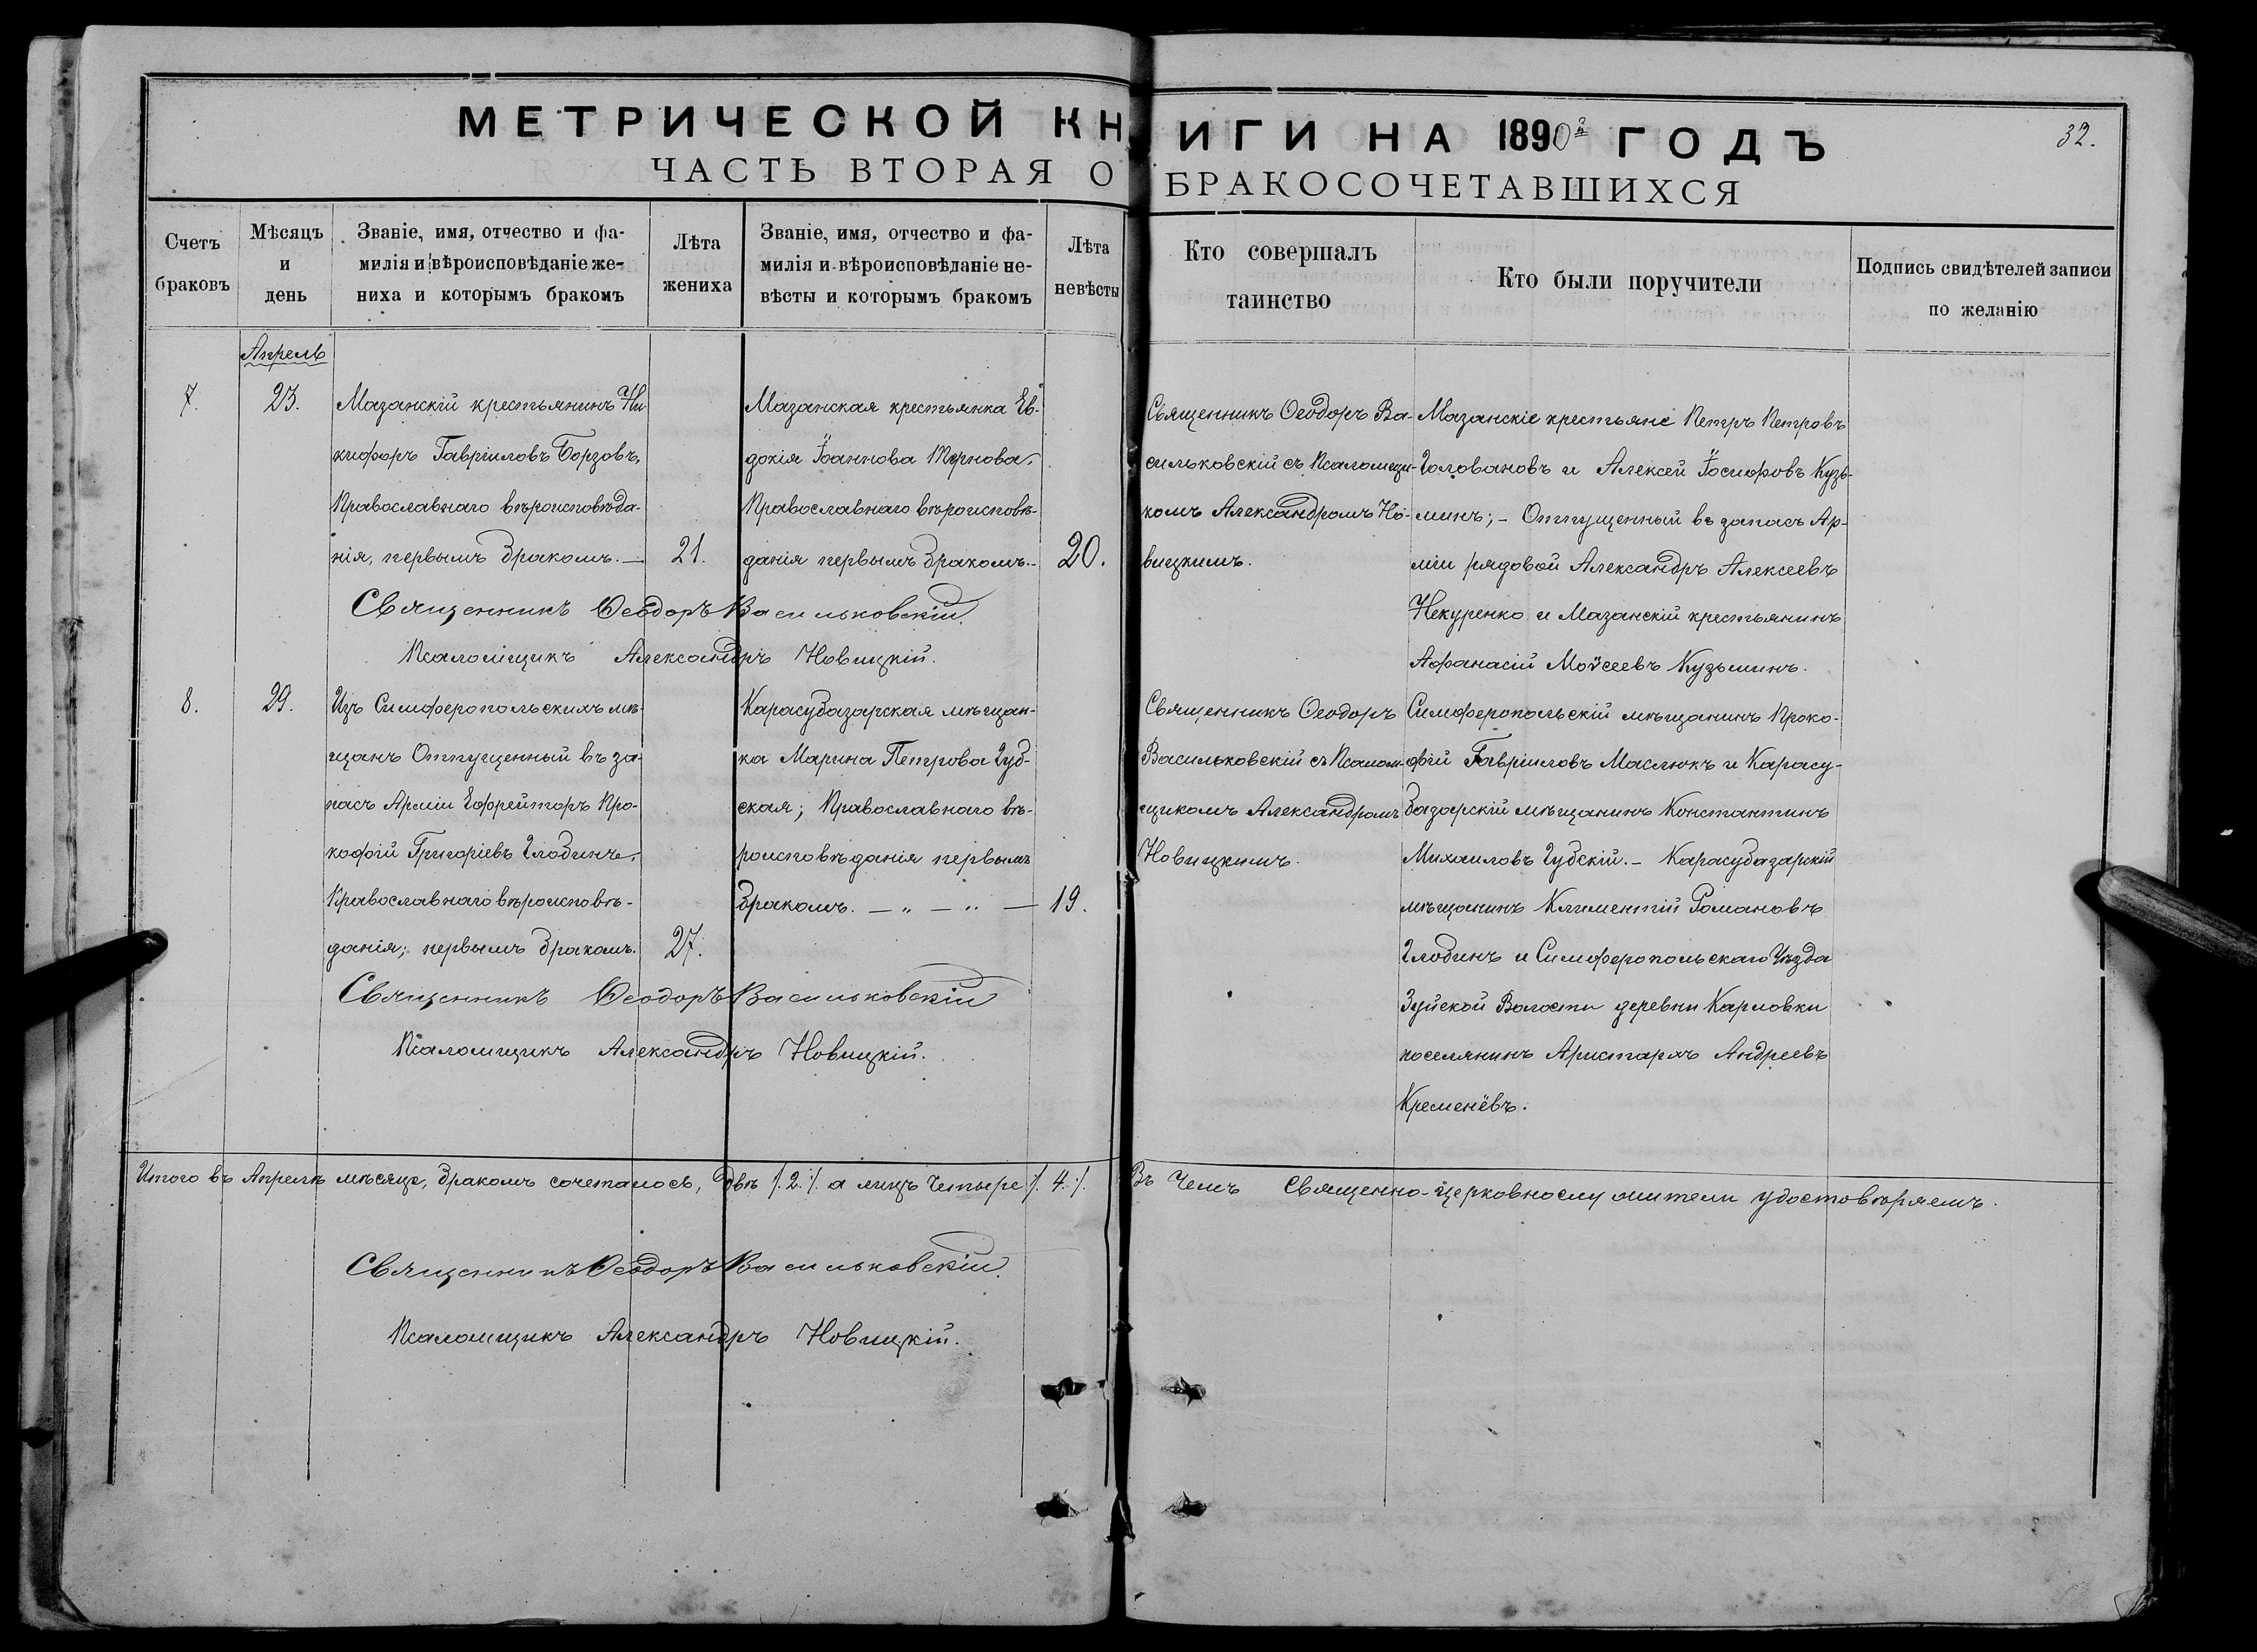 МЕТРИЧЕСКОЙ КНИГИ НА 1890й ГОДЪ
32.
ЧАСТЬ ВТОРАЯ О БРАКОСОЧЕТАВШИХСЯ
Счетъ
браковъ
Мѣсяцъ
и
день
Званіе, имя, отчество и фа-
милія и вѣроисповѣданіе же-
ниха и которымъ бракомъ
Лѣта
жениха
Званіе, имя, отчество и фа-
милія и вѣроисповѣданіе не-
вѣсты и которымъ бракомъ
Лѣта
невѣсты
Кто совершалъ
таинство
Кто были поручители
Подпись свидѣтелей записи
по желанію
Апрель
7.
23.
Мазанскій крестьянинъ Ни-
кифоръ Гавріиловъ Борзовъ,
Православнаго вѣроисповѣда-
нія, первымъ бракомъ. —
21.
Мазанская крестьянка Ев-
докія Іоаннова Тернова,
Православнаго вѣроисповѣ-
данія первымъ бракомъ. -
20.
Священникъ Ѳеодоръ Ва-
сильковскій съ Псаломщи-
комъ Александромъ Но-
вицкимъ.
Мазанскіе крестьяне Петръ Петровъ
Головановъ и Алексей Іосифовъ Кузь-
минъ; - Отпущенный въ запасъ Ар-
міи рядовой Александръ Алексеевъ
Некуренко и Мазанскій крестьянинъ
Афанасій Моѵсеевъ Кузьминъ.
Священникъ Ѳеодоръ Васильковскій
Псаломщикъ Александръ Новицкій.
8.
29.
Изъ Симферопольскихъ мѣ-
щанъ Отпущенный въ за-
пасъ Арміи Ефрейторъ Про-
кофій Григоріевъ Глобинъ,
Православнаго вѣроисповѣ-
данія; первымъ бракомъ.
27.
Карасубазарская мѣщан-
ка Марина Петрова Губ-
ская; Православнаго вѣ-
роисповѣданія первымъ
бракомъ. — „ — „ —
19.
Священникъ Ѳеодоръ
Васильковскій съ Псалом-
щикомъ Александромъ
Новицкимъ.
Симферопольскій мѣщанинъ Проко-
фій Гавріиловъ Маслюкъ и Карасу-
базарскій мѣщанинъ Константинъ
Михаиловъ Губскій. - Карасубазарскій
мѣщанинъ Климентій Романовъ
Глобинъ и Симферопольскаго Уѣзда
Зуйской Волости деревни Карловки
поселянинъ Аристархъ Андреевъ
Кременёвъ.
Священникъ Ѳеодоръ Васильковскій
Псаломщикъ Александръ Новицкій.
Итого въ Апрелѣ мѣсяце, бракомъ сочеталось, двѣ /. 2. /. а лицъ Четыре /. 4. /. Въ Чемъ Священно-церковнослужители удостовѣряемъ.
Священникъ Ѳеодоръ Васильковскій.
Псаломщикъ Александръ Новицкій.